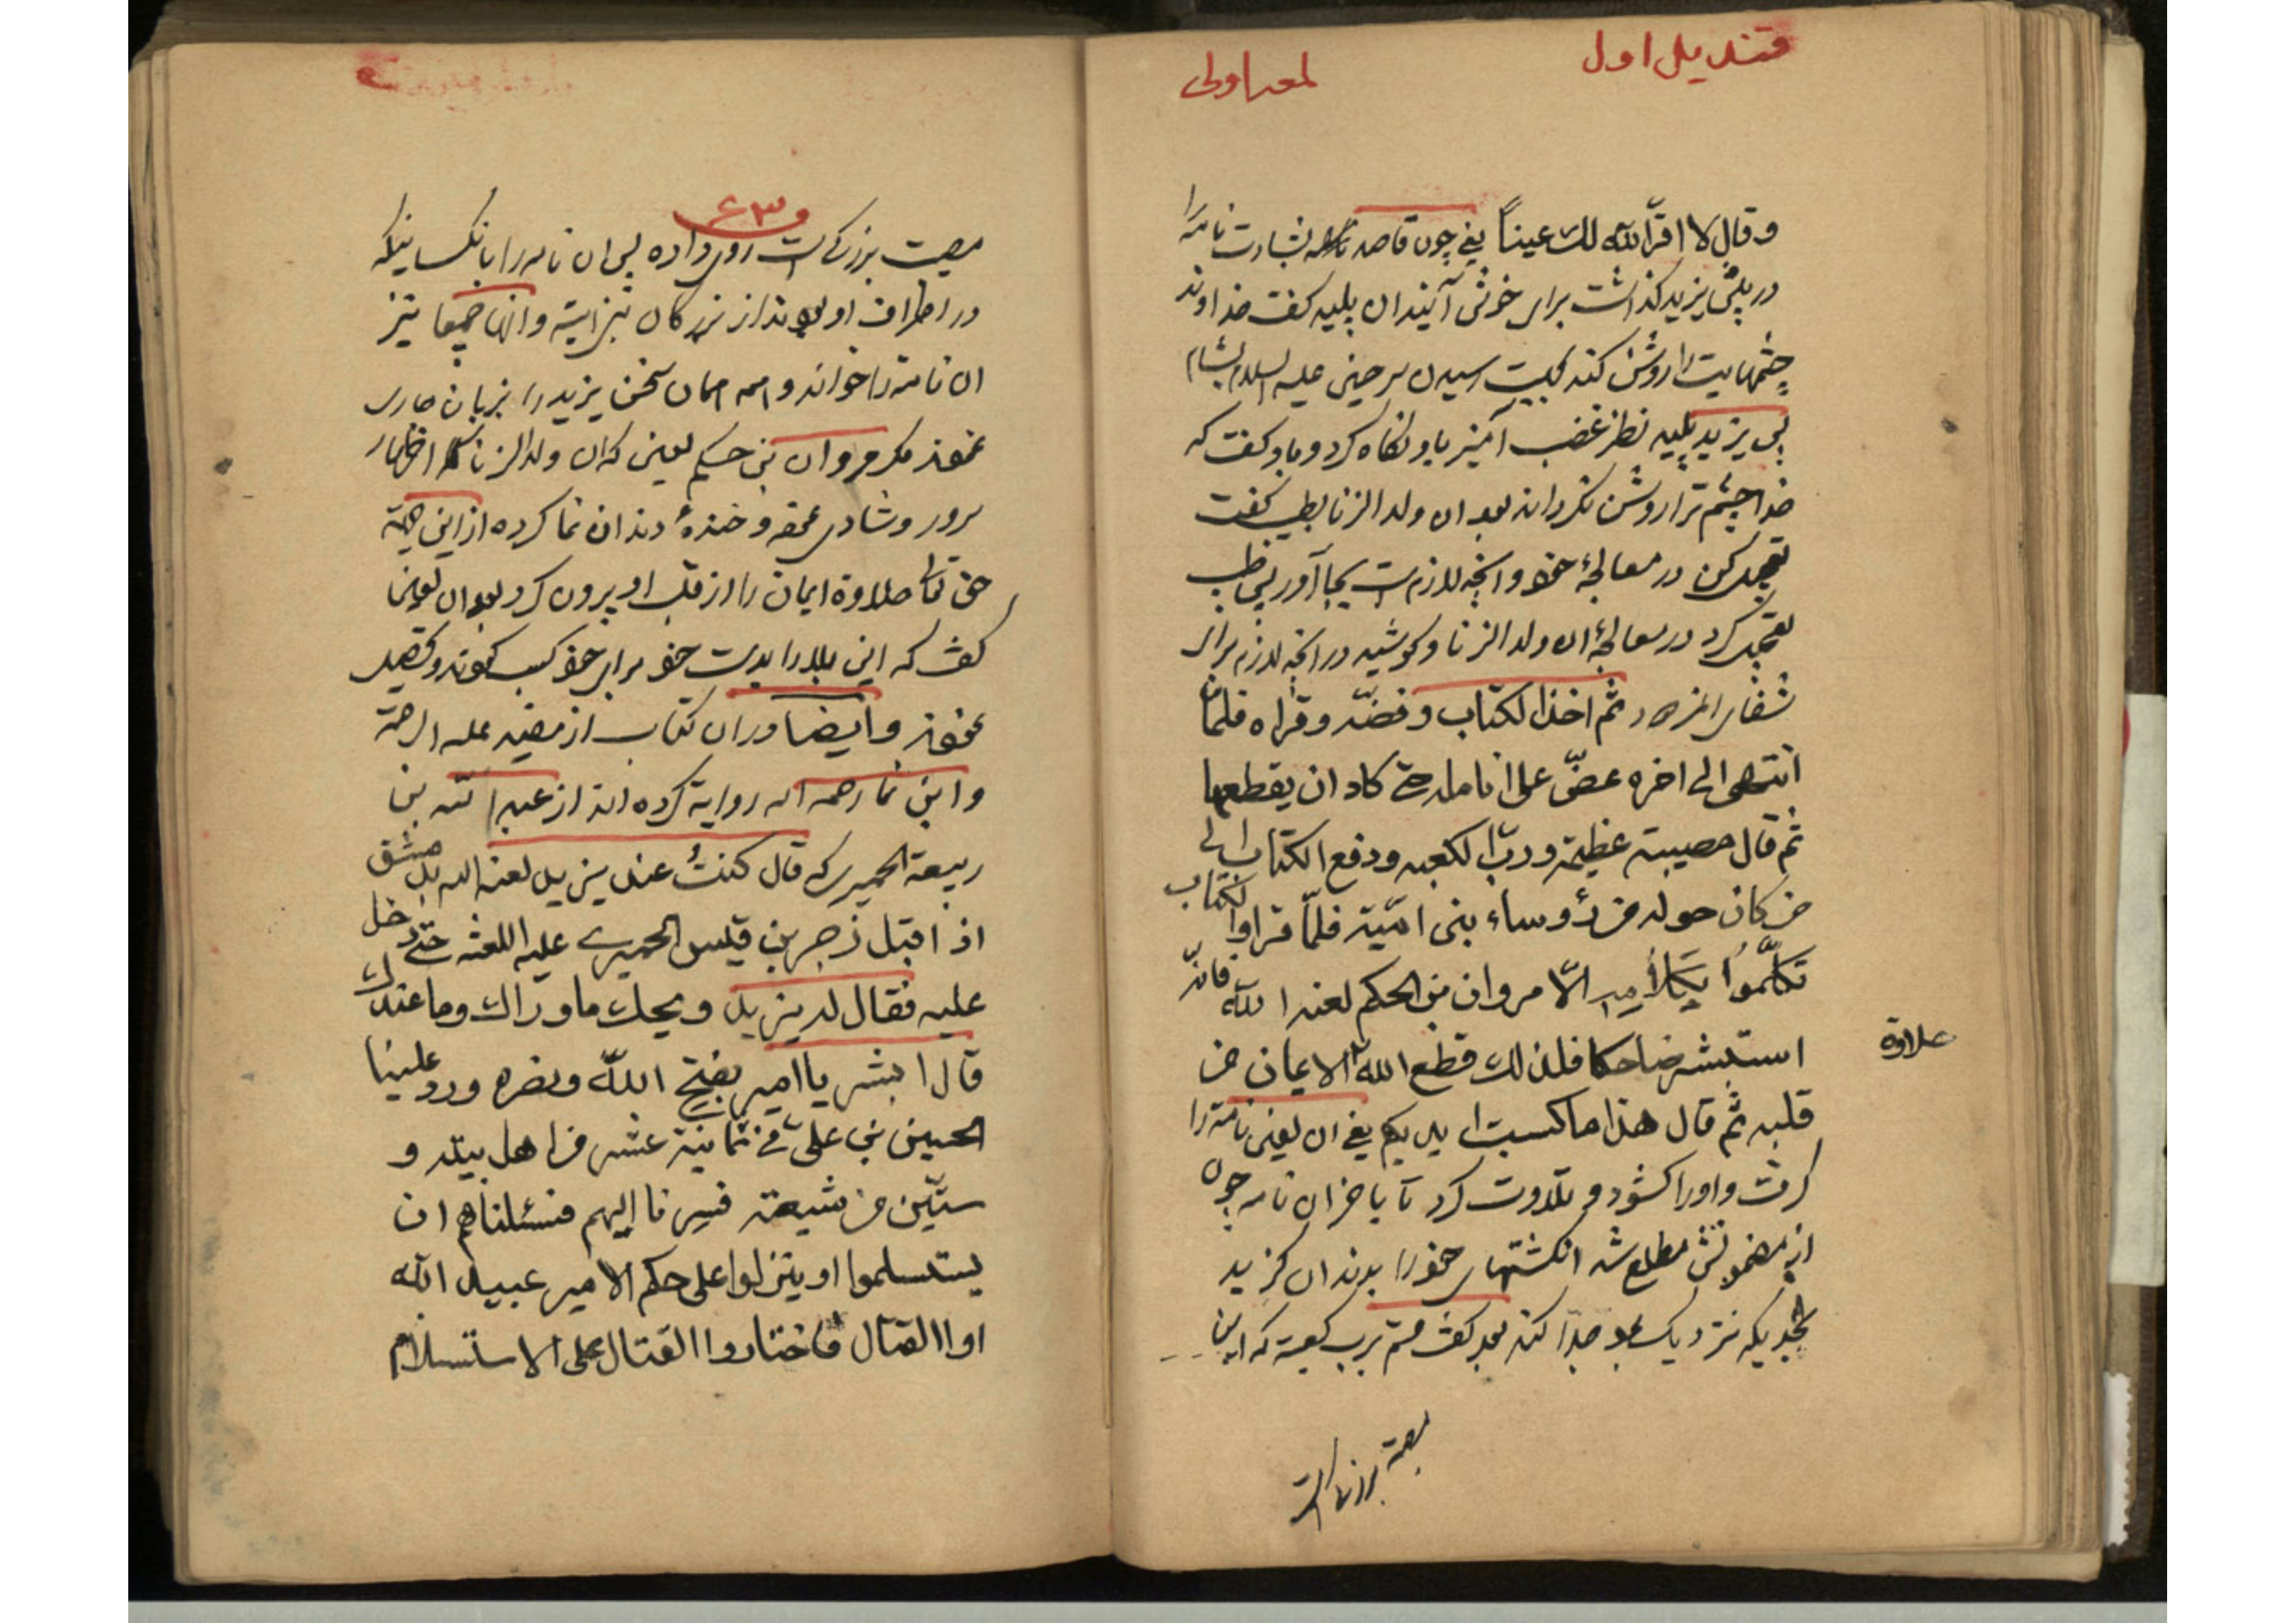 قندیل اول
لمعه اولی
وقال لا اقرّ الله لك عیناً یعنی چون قاصد بشارت نامه را
در پیش یزید گذاشت برای خوش آیند ان پلید گفت خداوند
چشمهایت را روشن کند رسیدن سر حسین علیه السلام بشام
پس یزید پلید نظر غضب آمیز باو نگاه کرد و باو گفت که
خدا چشم ترا روشن نگرداند بعد ان ولد الزنا بطبیب گفت
تعجیل کن در معالجهٔ خود و انچه لازم است بجا آور پس طبیب
تعجیل کرد در معالجهٔ ان ولد الزنا و کوشید در انچه لازم برای
شفای ثم اخذ الکتاب وفضّه وقراه فلمّا
انتهی الی اخره عضّ علی انامله حتی کاد ان یقطعها
ثم قال مصیبة عظیمة وربّ الکعبه ودفع الکتاب الی
من کان حوله من رؤساء بنی امیّة فلمّا قراوا الکتاب
تکلّموا الّا مروان بن الحکم لعنه الله فانّه
استبشر ضاحکا فلذلك قطع الله الایمان من
علاوة
قلبه ثم قال هذا ما کسبت ایدیکم یعنی ان لعین نامه را
گرفت و او را کشود و تلاوت کرد تا باخر ان نامه چون
از مضمونش مطلع شد انگشتهای خود را بدندان گزید
بحدیکه نزدیک بود جدا کند بعد گفت قسم برب کعبه که این
مصیبت بزرگ است
۶۳
مصیبت بزرگی است روی داده پس ان نامه را بانکسانیکه
در اطراف او بودند از بزرگان بنی امیه و انها جمیعا نیز
ان نامه را خواندند و همه همان سخن یزید را بزبان جاری
نمودند مگر مروان بن حکم لعین که ان ولد الزنا اظهار
سرور و شادی نمود و خندهٔ دندان نما کرده از این جهة
حق تعالی حلاوة ایمان را از قلب او بیرون کرد بعد ان لعین
گفت که این بلا را بدست خود برای خود کسب نمودند و تحصیل
نمودند وایضا در ان کتاب از مفید علیه الرحمة
و ابن نما رحمه الله روایة کرده اند از عبد الله بن
ربیعة الحمیری که قال کنتُ عند یزید لعنه الله بدمشق
اذ اقبل زجر بن قیس الحمیری علیه اللعنة حتی دخل
علیه فقال له یزید ویحك ما وراك وما عندك
قال ابشر یا امیر بفتح الله ونصره ورد علینا
الحسین بن علی فی ثمانیة عشر من اهل بیته و
ستّین من شیعته فسرنا الیهم فسئلناهم ان
یستسلموا او ینزلوا علی حکم الامیر عبید الله
او القتال فاختاروا القتال علی الاستسلام